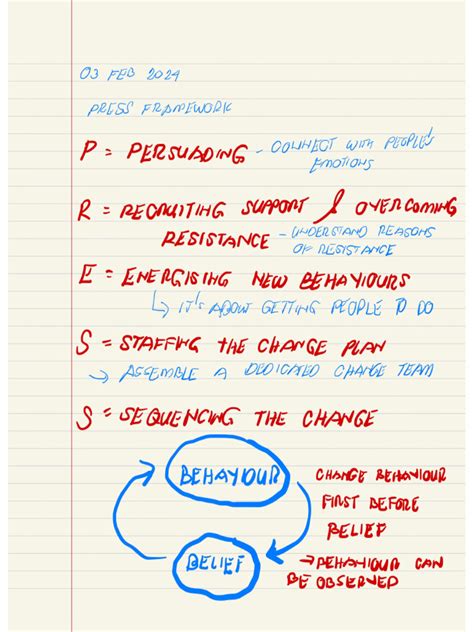 03 FEB 2024
PRESS FRAMEWORK
P = PERSUADING - CONNECT WITH PEOPLE'S
EMOTIONS
R = RECRUITING SUPPORT & OVERCOMING
RESISTANCE - UNDERSTAND REASONS
OF RESISTANCE
E = ENERGISING NEW BEHAVIOURS
↳ IT'S ABOUT GETTING PEOPLE TO DO
S = STAFFING THE CHANGE PLAN
→ ASSEMBLE A DEDICATED CHANGE TEAM
S = SEQUENCING THE CHANGE
BEHAVIOUR
BELIEF
CHANGE BEHAVIOUR
FIRST BEFORE
BELIEF
→ BEHAVIOUR CAN
BE OBSERVED